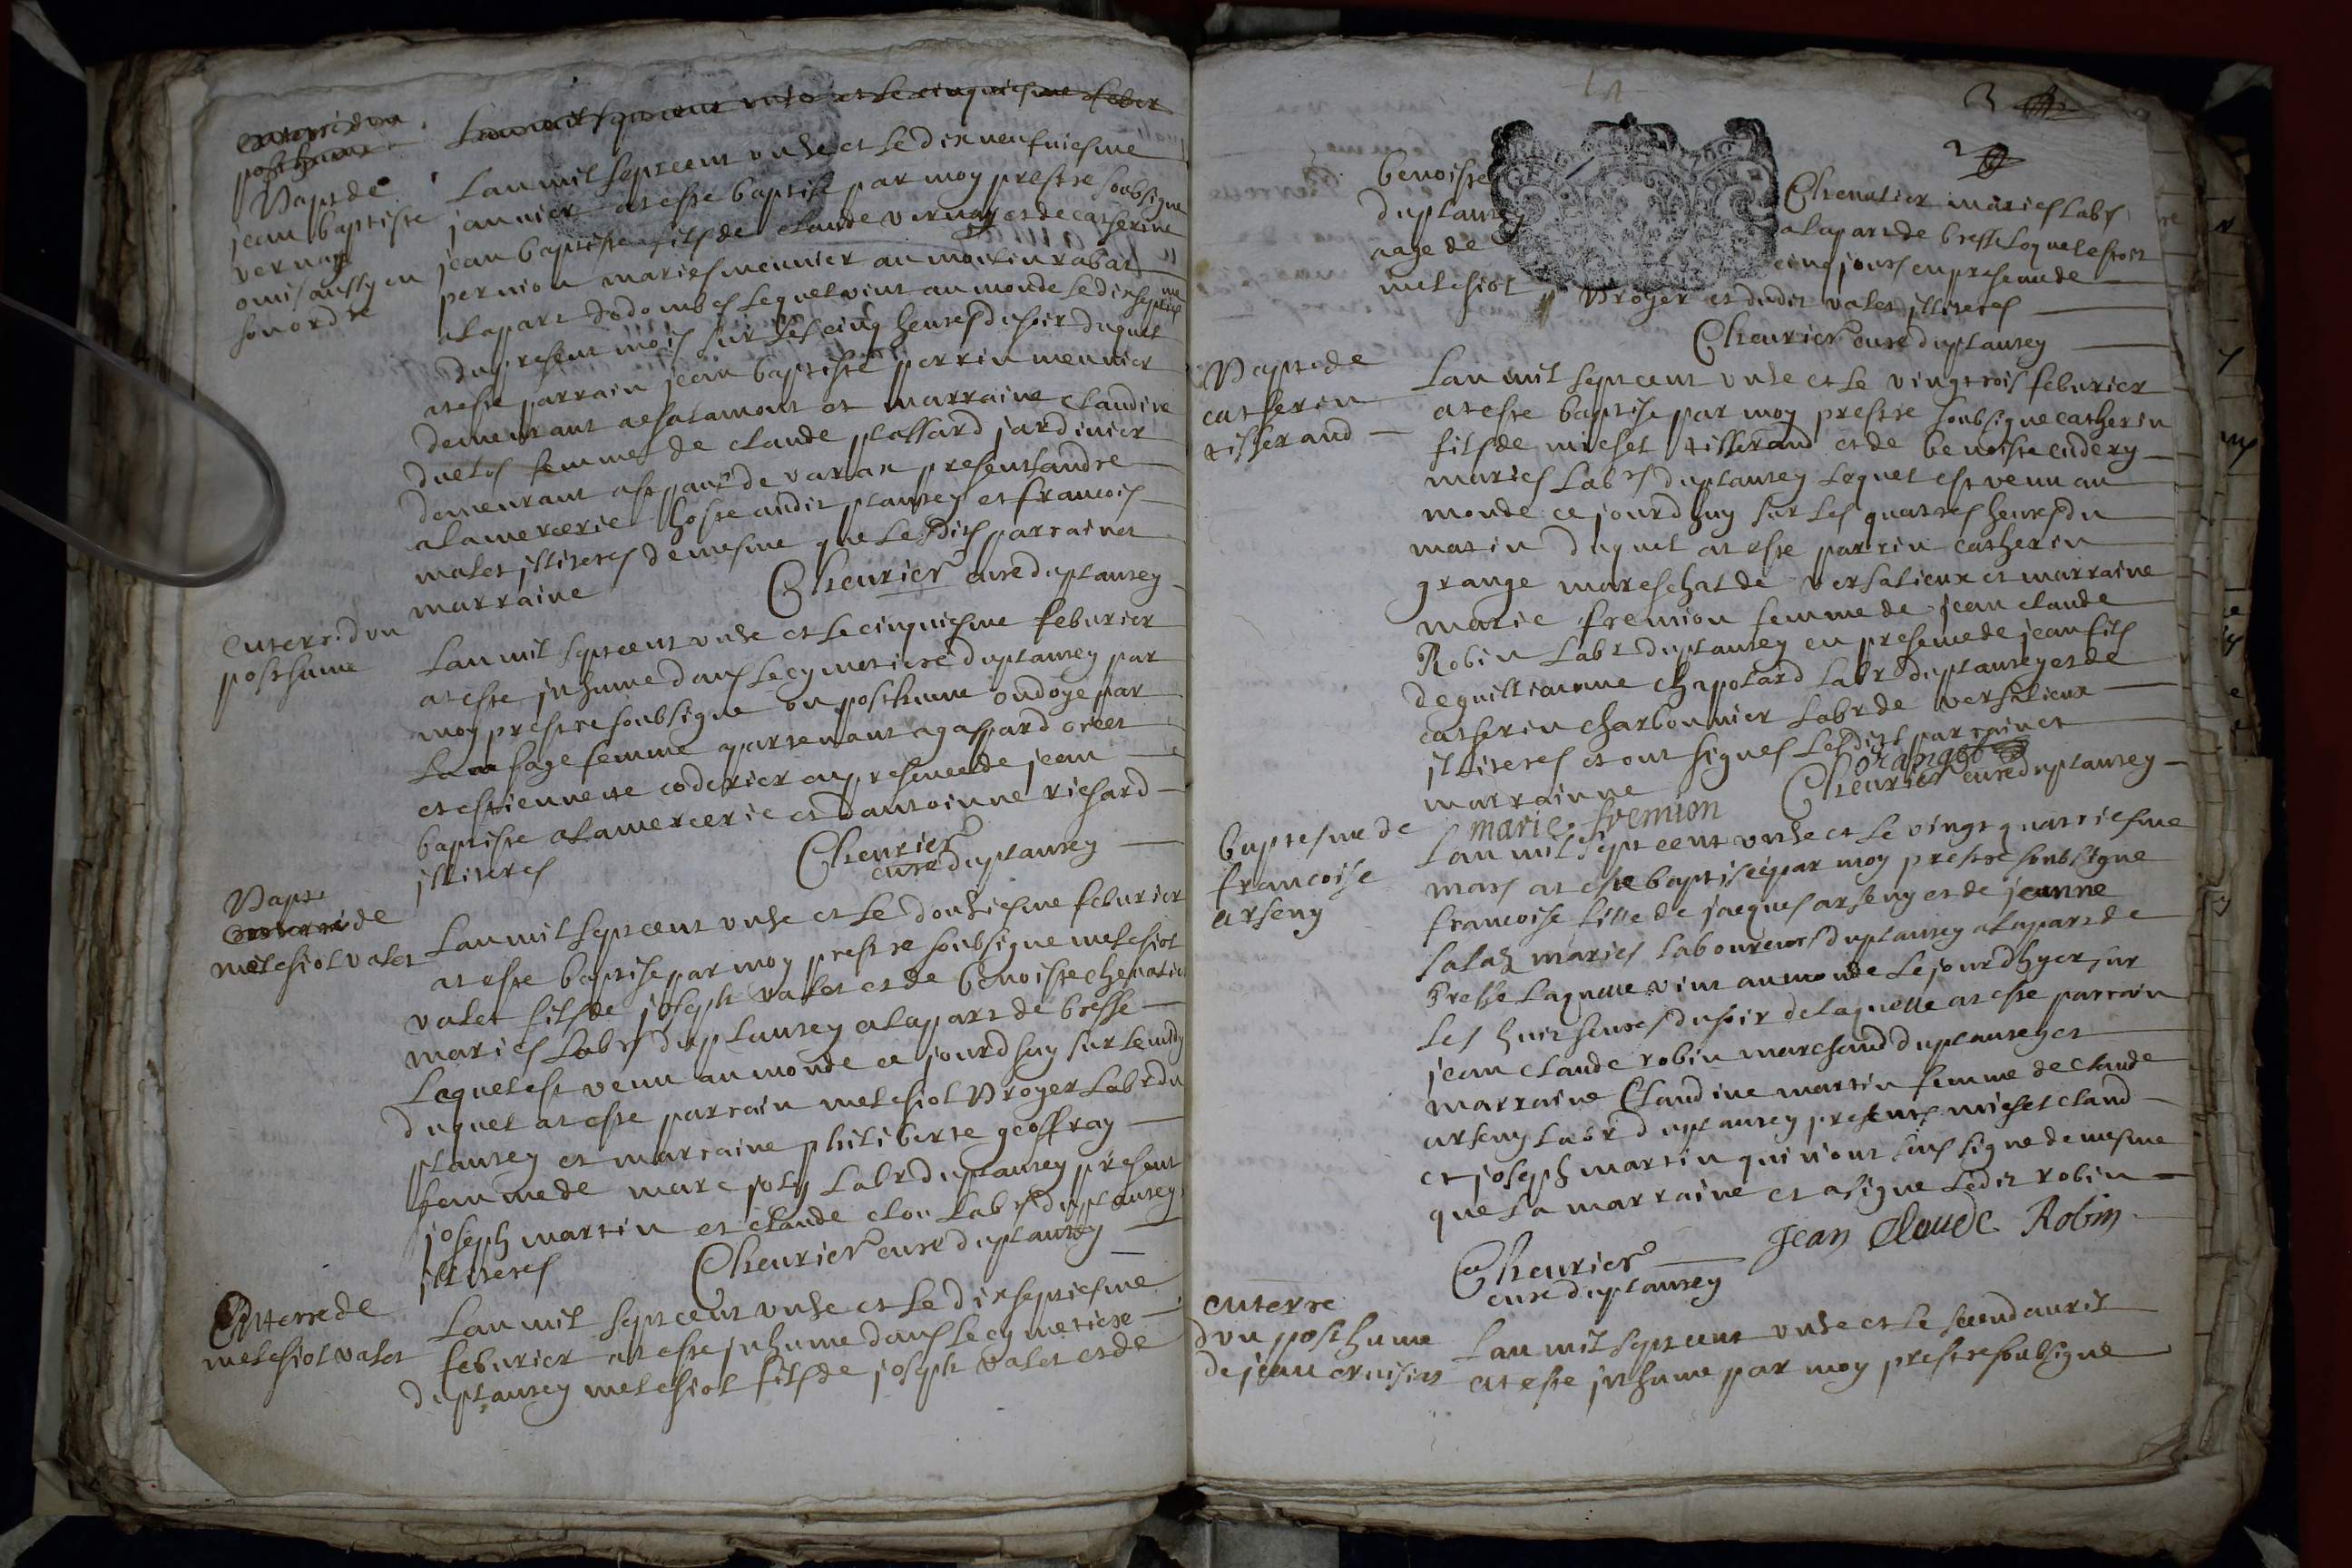 enterre d un
posthume
Lan mil sept cent unse et le cinquiesme feber
Bapt de
jean baptiste
vernay
omis aussy en
son ordre
Lan mil sept cent unse et le dix neufuiesme
januier at este baptise par moy prestre soubsigne
jean baptiste fils de claude vernay et de catherine
pernion maries meunier au moulin rabat
alapart de dombes lequel vint au monde le dix septies me
du present mois sur les cinq heures du soir duquel
at este parrain jean baptiste perrin meunier
demeurant a chatamont et marraine claudine
duclos femme de claude plassard jardinier
demeurant a st paul de varax present andre
alamercerie hoste audit plantey et francois
malet jlliteres de mesme que lesdits parrain et
marraine
Cheurier cure du plantey
enterre d un
posthume
Lan mil sept cent unse et le cinquiesme feburier
at este jnhume dans le cymetiere du plantey par
moy prestre soubsigne un posthume ondoye par
la sage femme appartenant a gaspard
et estiennette coderier en presence de jean
baptiste alamercerie et d antoinne richard
jlliteres
Cheurier
cure du plantey
Bapt
enterre de
melchiol valet
Lan mil sept cent unse et le douhiesme feburier
at este baptise par moy prestre soubsigne melchiol
valet fils de joseph valet et de benoiste chevatier
maries labrs du plantey alapart de bresse
lequel est venu au monde ce jourdhuy sur le midy
duquel at este parrain melchiol Broyer labr du
plantey et marraine philiberte geoffray
femme de marc joly labr du plantey present
joseph martin et claude clou labrs du plantey
jlliteres
Cheurier cure du plantey
Enterre de
melchiol valet
Lan mil sept cent unse et le dix septiesme
feburier at este jnhume dans le cymetiere
du plantey melchiol fils de joseph valet et de
3
2
benoiste
du plantey
aage de
melchiol
Chevatier maries labrs
alapart de bresse lequel estoit
cinq jours en presence de
Broyer et dudit valet jlliteres
Cheurier cure du plantey
Bapt de
catherin
tisserand
Lan mil sept cent unse et le vingt trois feburier
at este baptise par moy prestre soubsigne catherin
fils de michel tisserand et de benoiste endery
maries labrs du plantey lequel est venu au
monde ce jourdhuy sur les quattres heures du
matin duquel at este parrin catherin
grange mareschal de versalieux et marraine
marie fremion femme de jean claude
Robin labr du plantey en presence de jean fils
de guilliaume chapolard labr du plantey et de
catherin charbonnier labr de versalieux
jlliteres et ont signes lesdits parrain et
marrainne
grange
marie fremion
Cheurier cure du plantey
baptesme de
francoise
arseny
Lan mil sept cent unse et le vingt quattriesme
mars at este baptisée par moy prestre soubsigne
francoise fille de jacques arseny et de jeanne
salah maries laboureurs du plantey alapart de
Bresse laquelle vint au monde le jour dhyer sur
les huit heures du soir de laquelle at este parrain
jean claude robin marchand du plantey et
marraine Claudine martin femme de claude
arseny labr du plantey presents michel claud
et joseph martin qui nont sus signe de mesme
que la marraine et a signe ledit robin
Jean Claude Robin
Cheurier
cure du plantey
enterre
d un posthume
de jean cruisiat
Lan mil sept cent unse et le second auril
at este jnhume par moy prestre soubsigne